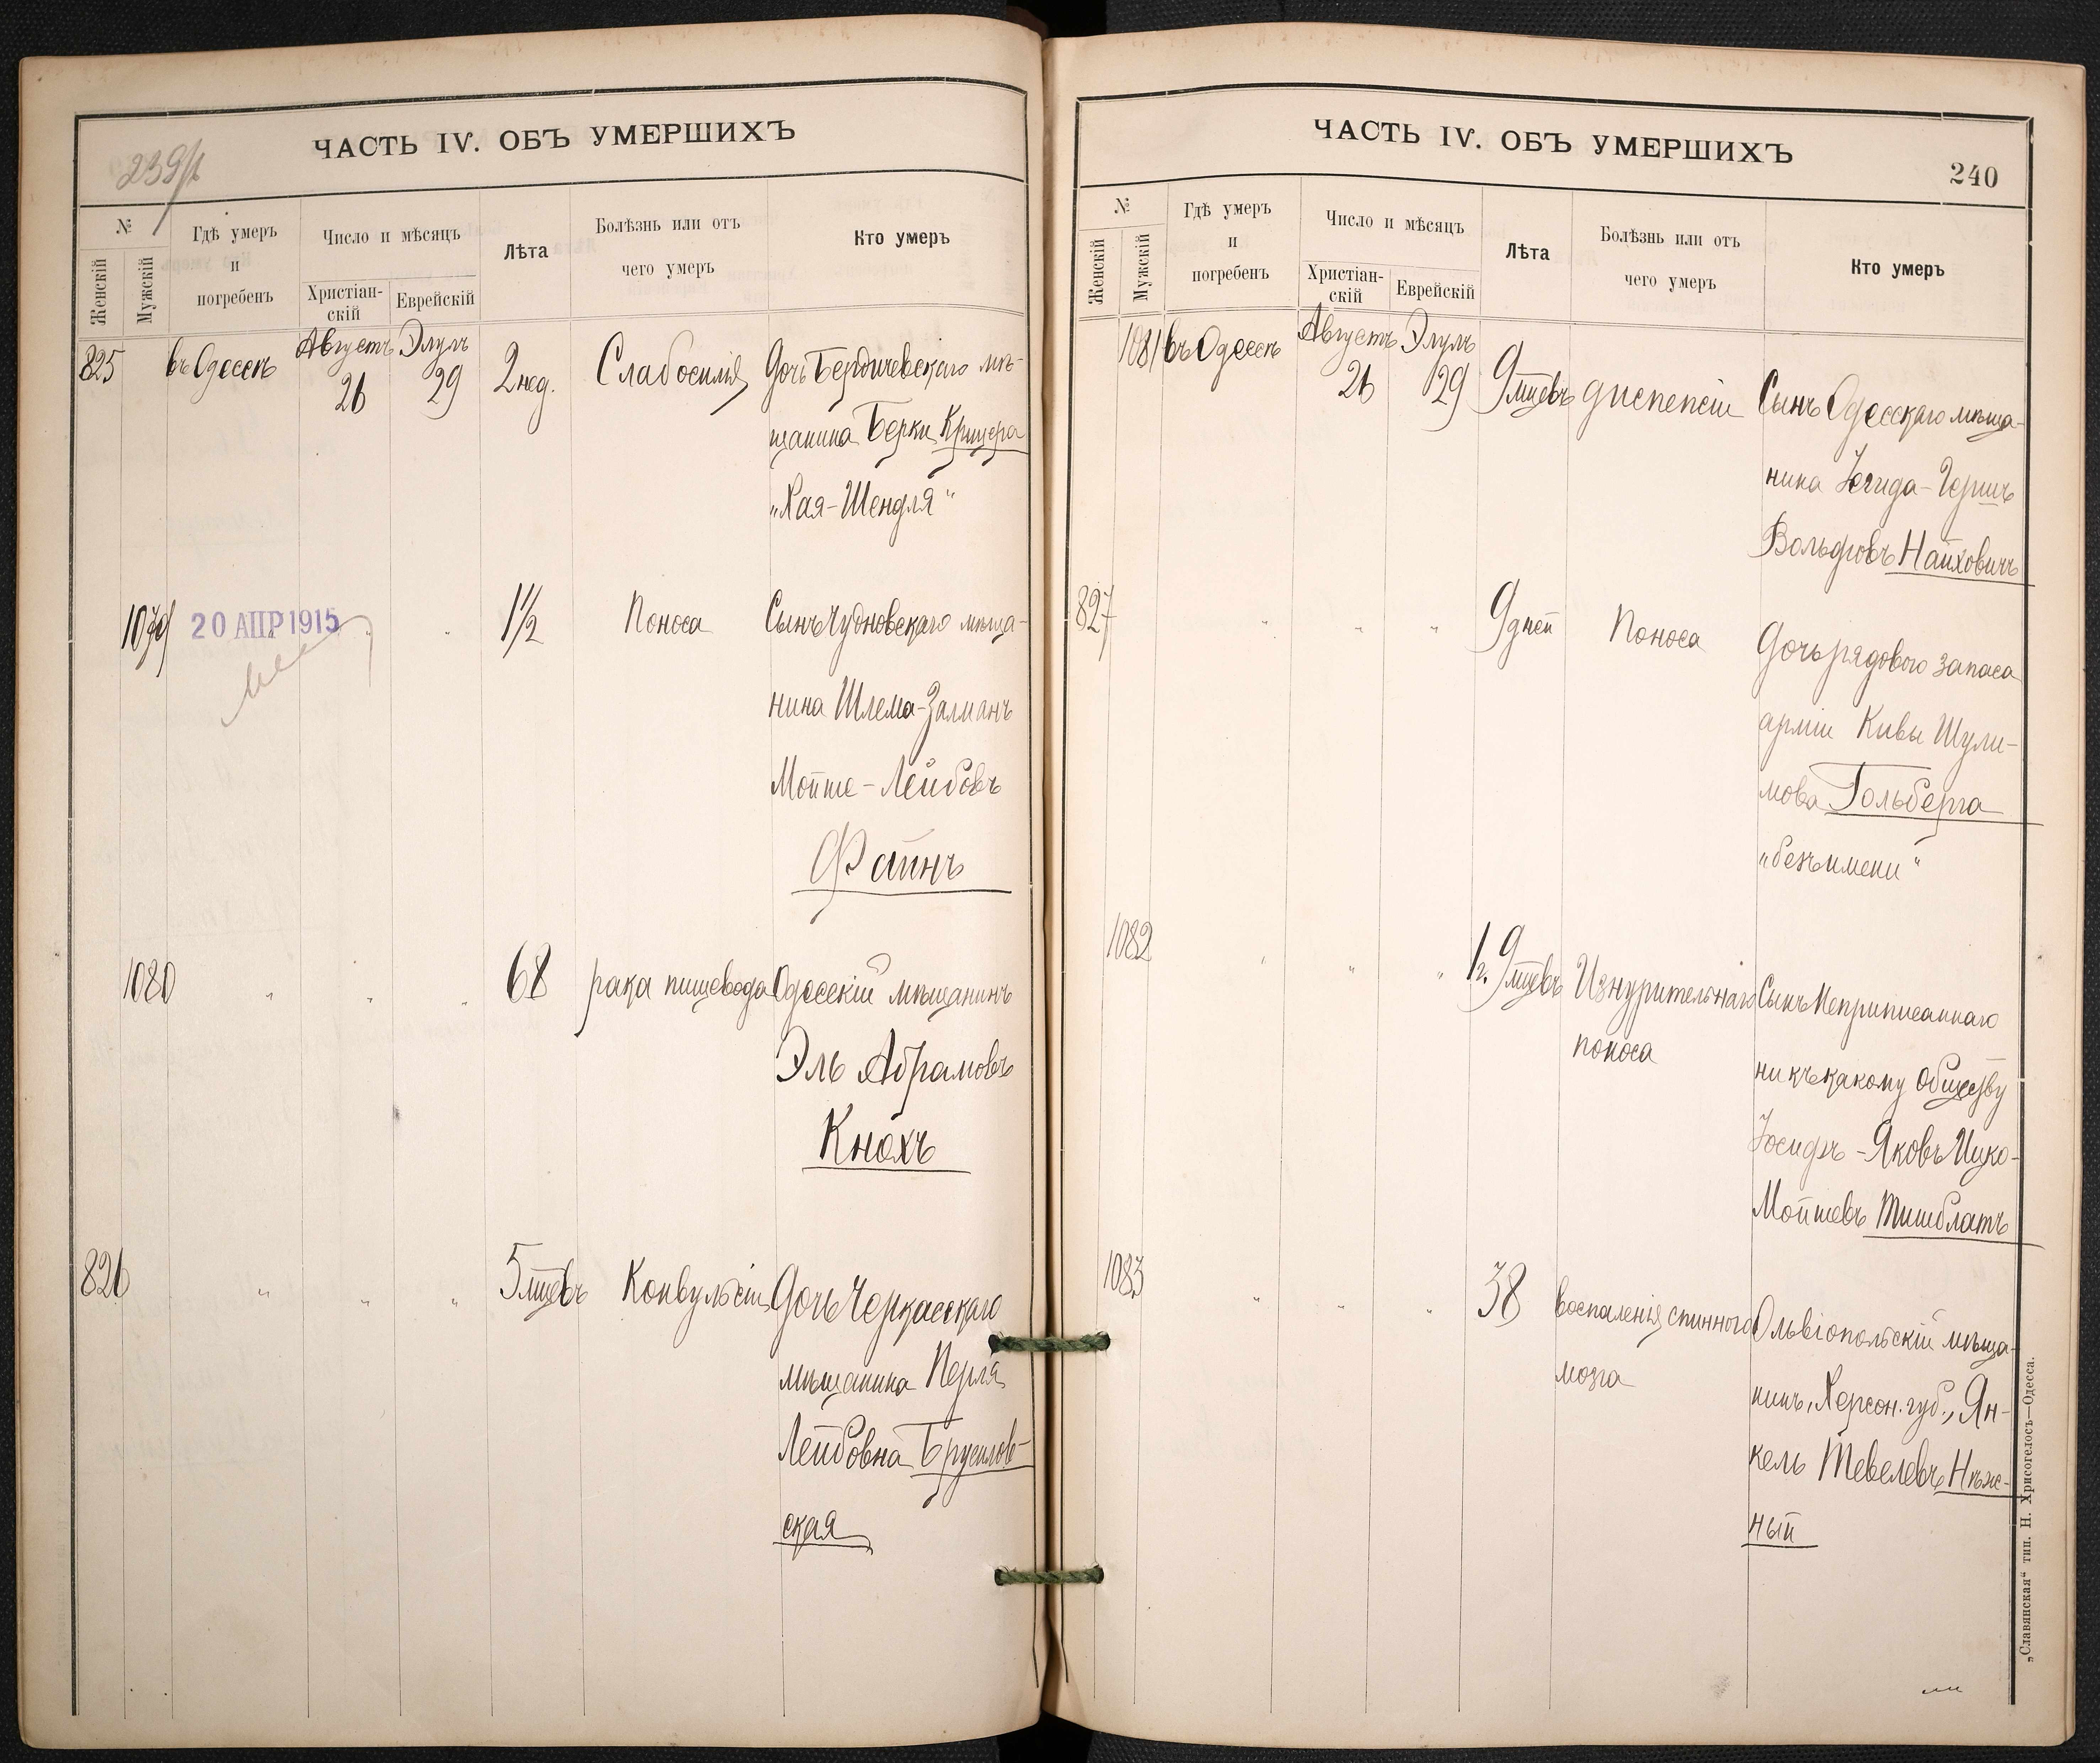 ЧАСТЬ IV. ОБЪ УМЕРШИХЪ
№
Женскій
Мужскій
Гдѣ умеръ
и
погребенъ
Число и мѣсяцъ
Христіан-
скій
Еврейскій
Лѣта
Болѣзнь или отъ
чего умеръ
Кто умеръ
825
въ Одессѣ
Августъ
26
Элулъ
29
2 нед.
Слабосилія
Дочь Бердичевскаго мѣ-
щанина Берки Крицера
„Хая-Шендля“
1079
20 АПР 1915
"
"
1½
Поноса
Сынъ Чудновскаго мѣща-
нина Шлема-Залманъ
Мойше-Лейбовъ
Файнъ
1080
"
"
"
68
рака пищевода
Одесскій мѣщанинъ
Эль Абрамовъ
Кнохъ
826
"
"
"
5 мцевъ
Конвульсіи
Дочь Черкасскаго
мѣщанина Перля
Лейбовна Брусилов-
ская
ЧАСТЬ IV. ОБЪ УМЕРШИХЪ
240
№
Женскій
Мужскій
Гдѣ умеръ
и
погребенъ
Число и мѣсяцъ
Христіан-
скій
Еврейскій
Лѣта
Болѣзнь или отъ
чего умеръ
Кто умеръ
1081
въ Одессѣ
Августъ
26
Элулъ
29
9 мцевъ
диспепсіи
Сынъ Одесскаго мѣща-
нина Іегида-Гершъ
Вольфовъ Найховичъ
827
"
"
"
9 дней
Поноса
Дочь рядового запаса
арміи Кивы Шули-
мова Гольберга
„безъ имени“
1082
"
"
"
1 г. 9 мцевъ
Изнурительнаго
поноса
Сынъ Неприписаннаго
ни къ какому обществу
Іосифъ-Яковъ Ицко-
Мойшевъ Тишблатъ
1083
"
"
"
38
воспаленія спинного
мозга
Ольвіопольскій мѣща-
нинъ, Херсон. губ., Ян-
кель Тевелевъ Нѣж-
ный
„Славянская“ тип. Н. Хрисогелосъ—Одесса.